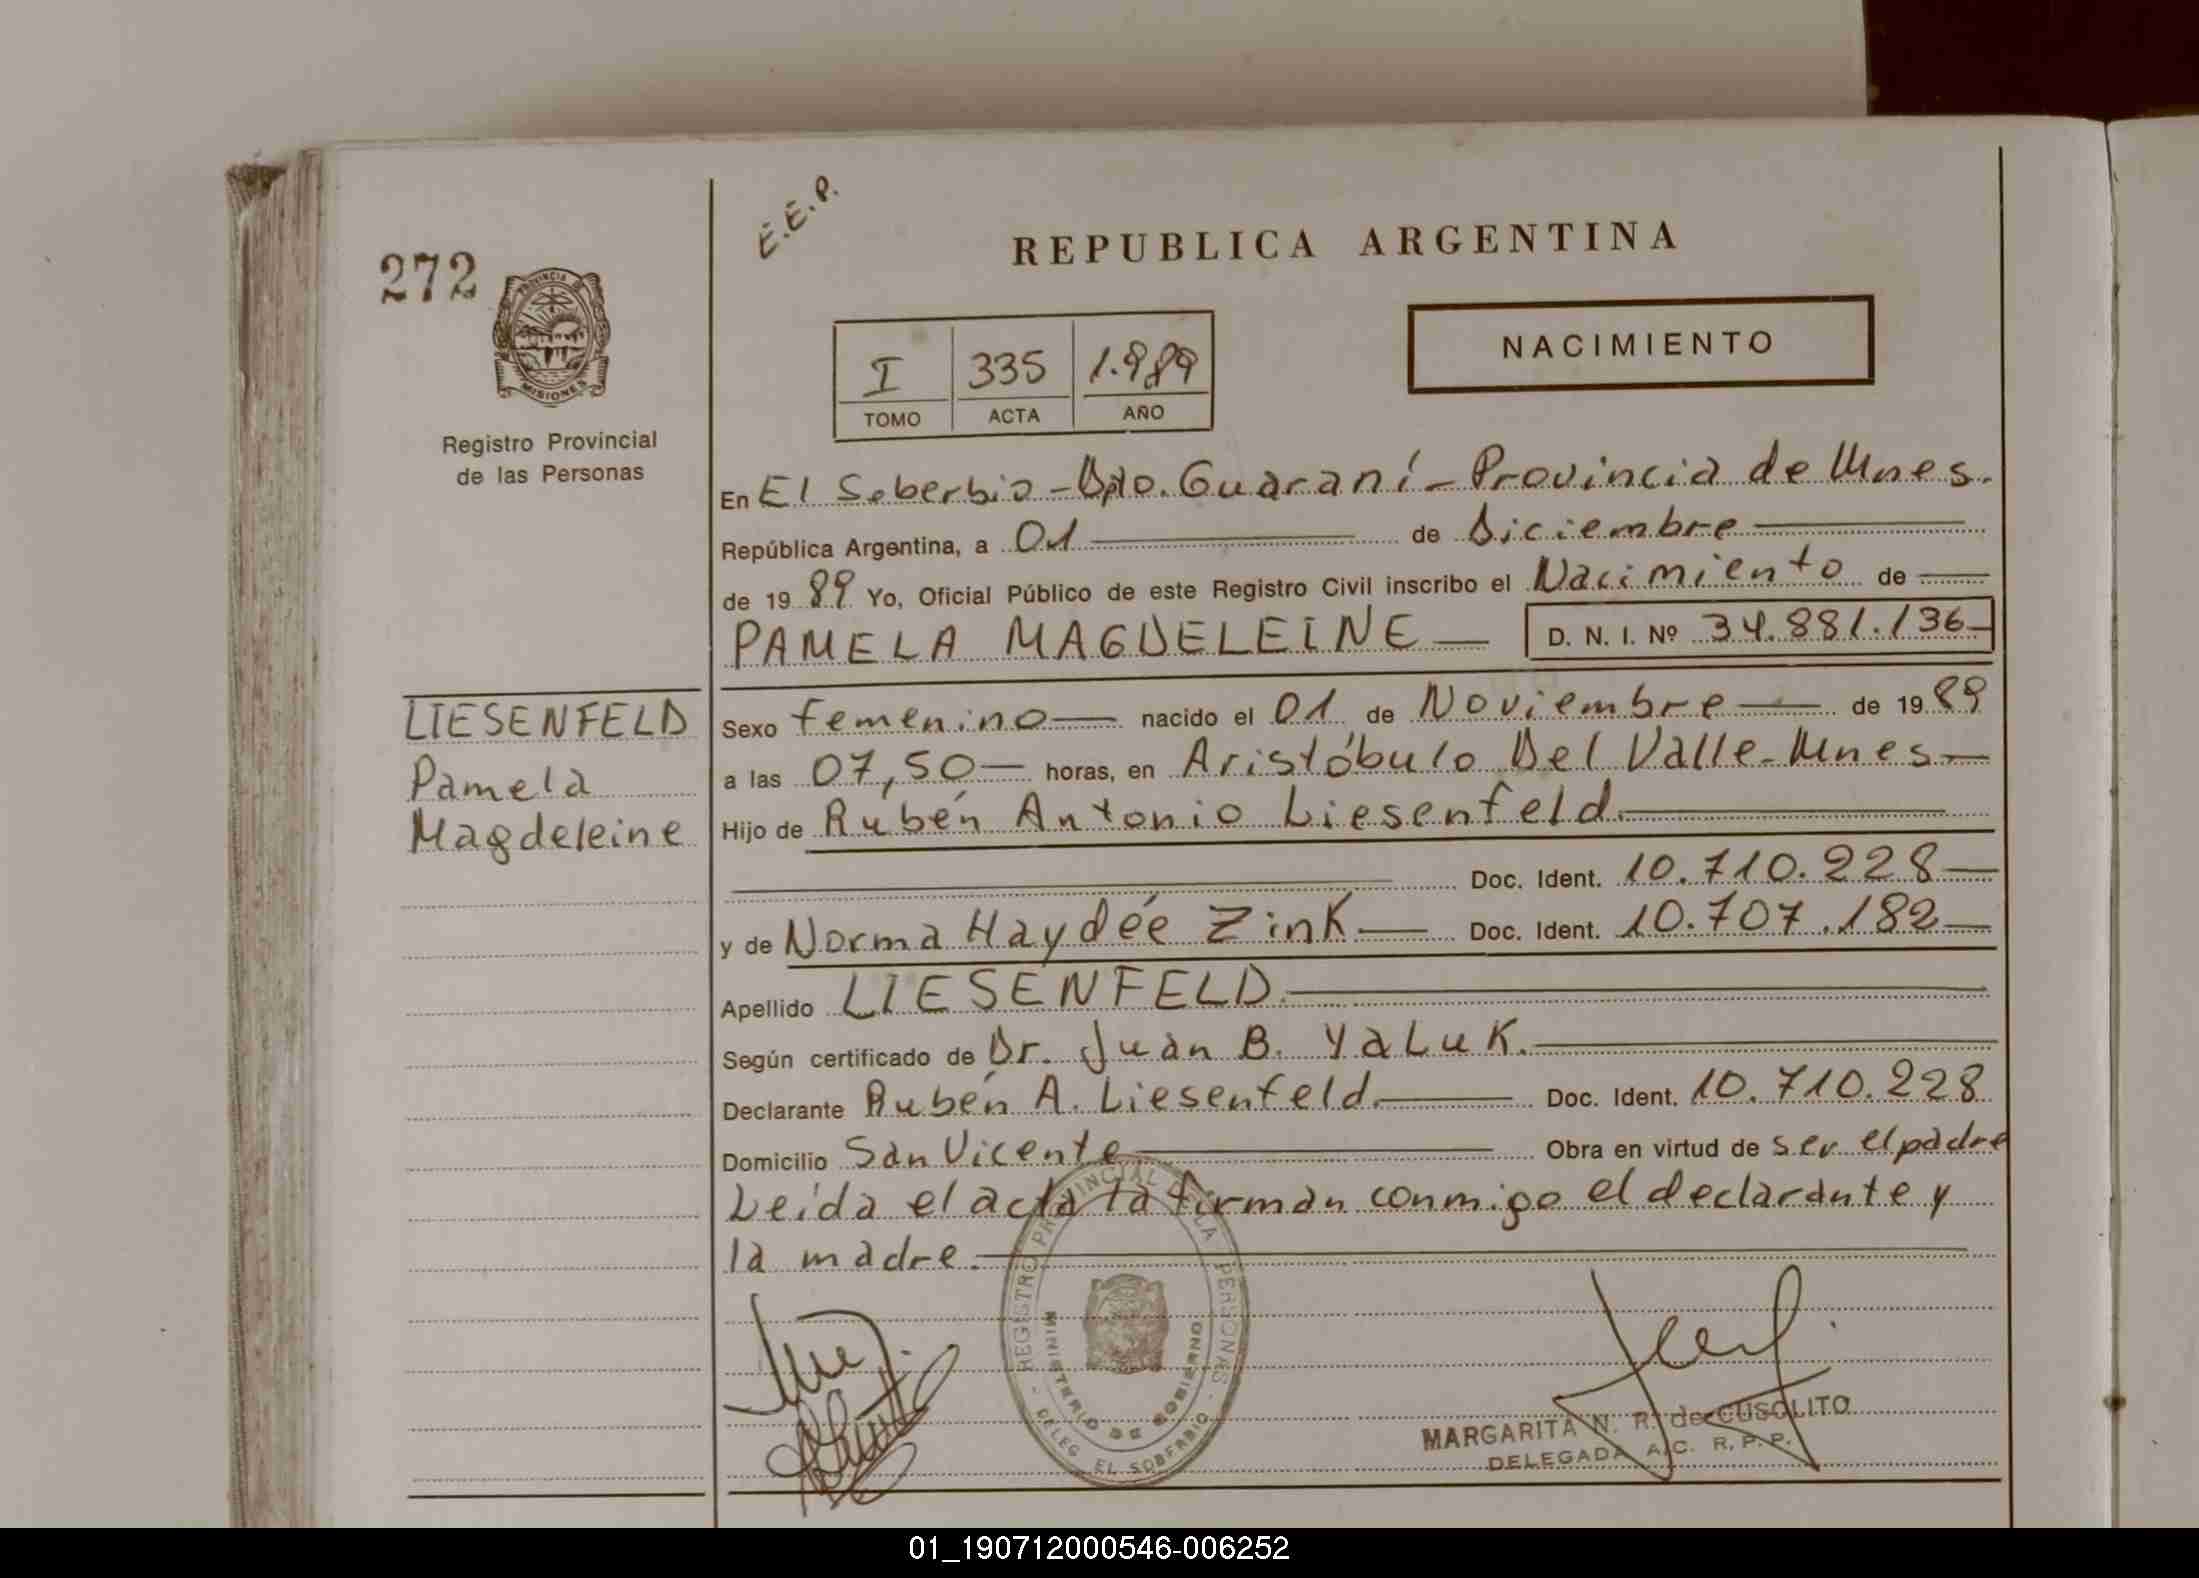 E.E.P.
REPUBLICA ARGENTINA
272
PROVINCIA DE
MISIONES
Registro Provincial
de las Personas
I 335 1.989
TOMO ACTA AÑO
NACIMIENTO
En El Soberbio - Dpto. Guaraní - Provincia de Mnes.
República Argentina, a 01 de Diciembre
de 1989 Yo, Oficial Público de este Registro Civil inscribo el Nacimiento de
PAMELA MAGDELEINE D. N. I. Nº 34.881.136
LIESENFELD
Pamela
Magdeleine
Sexo femenino nacido el 01 de Noviembre de 1989
a las 07,50 horas, en Aristóbulo Del Valle - Mnes
Hijo de Rubén Antonio Liesenfeld
Doc. Ident. 10.710.228
y de Norma Haydée Zink Doc. Ident. 10.707.182
Apellido LIESENFELD
Según certificado de Dr. Juan B. YaLuk.
Declarante Rubén A. Liesenfeld. Doc. Ident. 10.710.228
Domicilio San Vicente Obra en virtud de ser el padre
Leída el acta la firman conmigo el declarante y
la madre.
REGISTRO PROVINCIAL DE LA PERSONAS
MINISTERIO DE GOBIERNO
DELEG. EL SOBERBIO
MARGARITA N. R. de CUSOLITO
DELEGADA A/C. R. P. P.
01_190712000546-006252